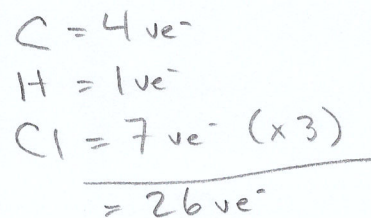 C = 4 ve⁻
H = 1 ve⁻
Cl = 7 ve⁻ (x 3)
= 26 ve⁻